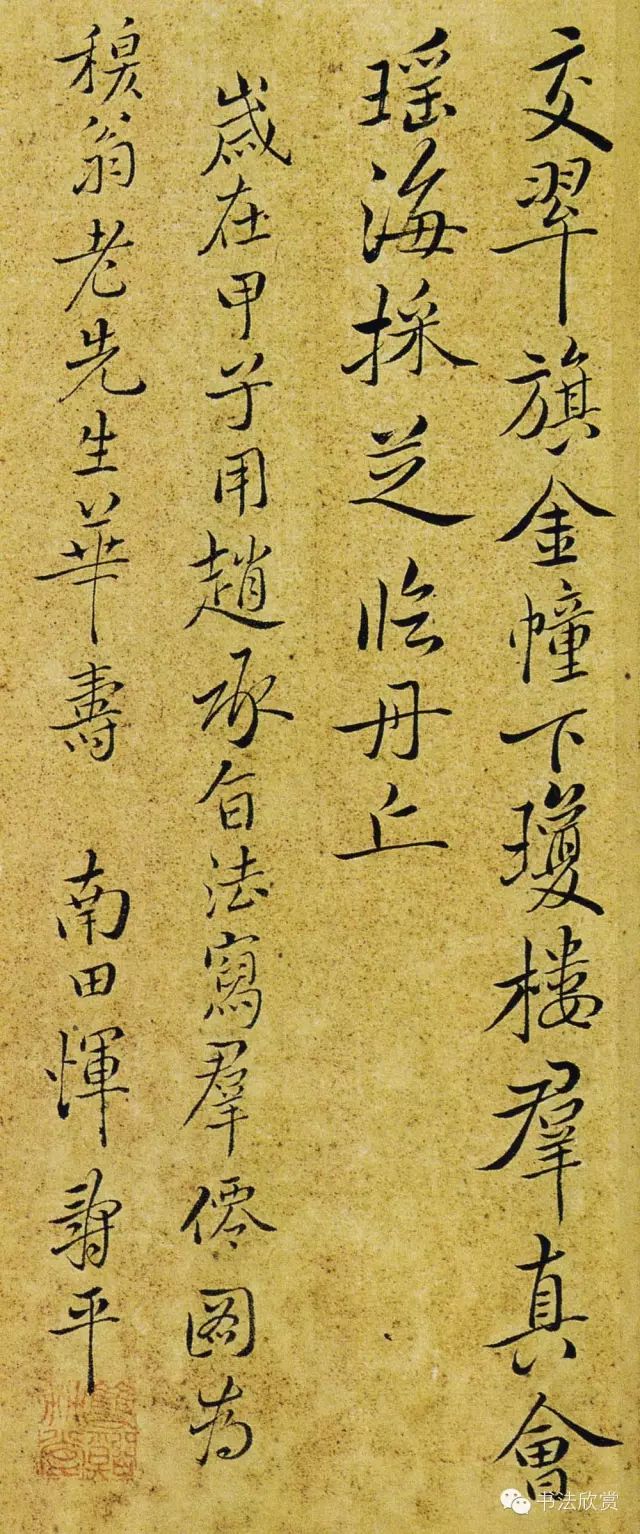 交翆旗金幢下瓊樓羣真會
瑶海採芝临丹丘
歲在甲子用趙承旨法寫羣僊圖為
翁老先生華壽 南田惲壽平
书法欣赏